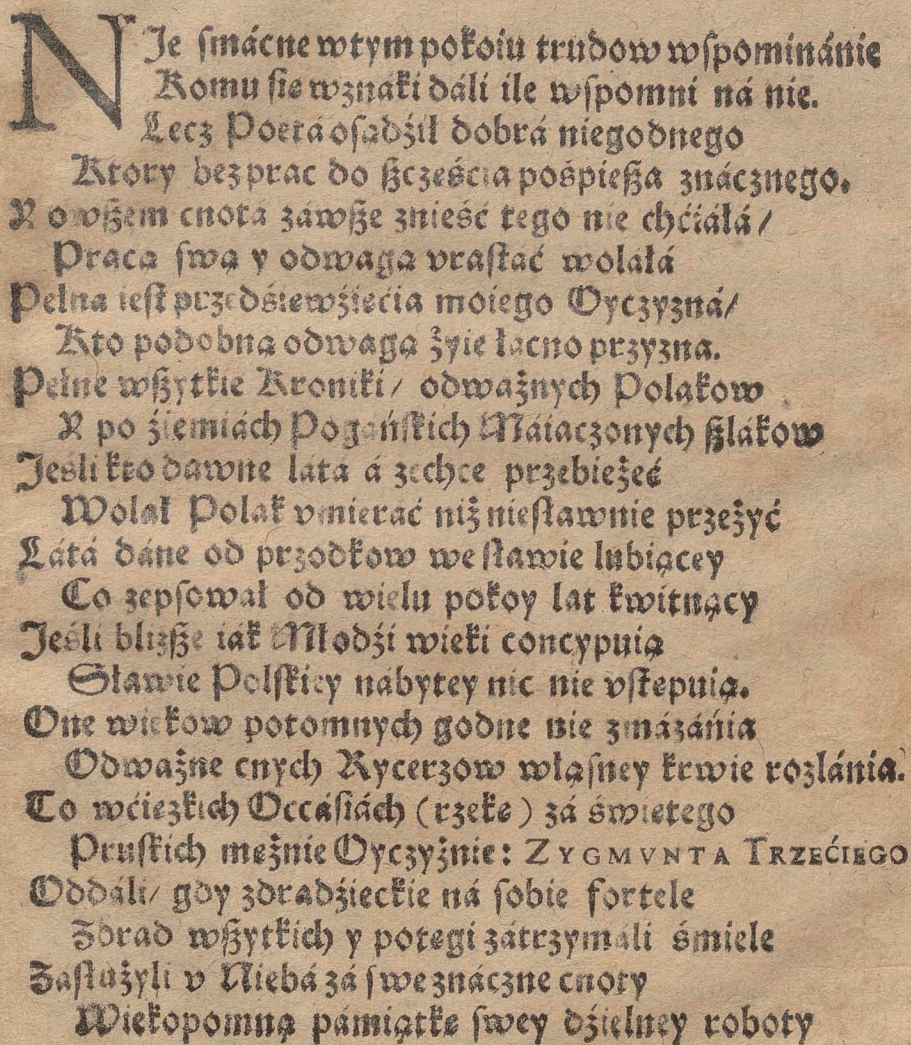 NJe smácne wtym pokoiu trudow wspominánie
Komu sie wznaki dáli ile wspomni ná nie.
Lecz Poetá osądźił dobrá niegodnego
Ktory bez prac do szczęścia pośpiesza znácznego.
Y owszem cnota záwsze znieść tego nie chćiáłá/
Pracą swą y odwagą vrastać wolałá
Pełna iest przedśiewźięcia moiego Oyczyzná/
Kto podobną odwagą żyie łacno przyzna.
Pełne wszytkie Kroniki/ odważnych Polakow
Y po źiemiách Pogańskich Máiaczonych szlakow
Jeśli kto dawne lata á zechce przebieżeć
Wolał Polak vmierać niż niesławnie przeżyć
Látá dáne od przodkow we sławie lubiącey
Co zepsował od wielu pokoy lat kwitnący
Jeśli bliższe iak Młodźi wieki concypuią
Sławie Polskiey nabytey nic nie vstepuią.
One wiekow potomnych godne nie zmázánia
Odważne cnych Rycerzow własney krwie rozlánia.
To wćiezkich Occásiách (rzekę) zá świętego
Pruskich mężnie Oyczyźnie: ZYGMVNTA TRZEĆIEGO
Oddáli/ gdy zdradźieckie ná sobie fortele
Zdrad wszytkich y potegi zátrzymáli śmiele
Zasłużyli v Niebá zá swe znáczne cnoty
Wiekopomną pámiątkę swey dźielney roboty